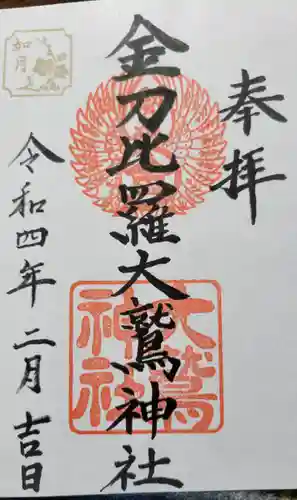 奉拝
金刀比羅大鷲神社
令和四年二月吉日
如月
大鷲神社